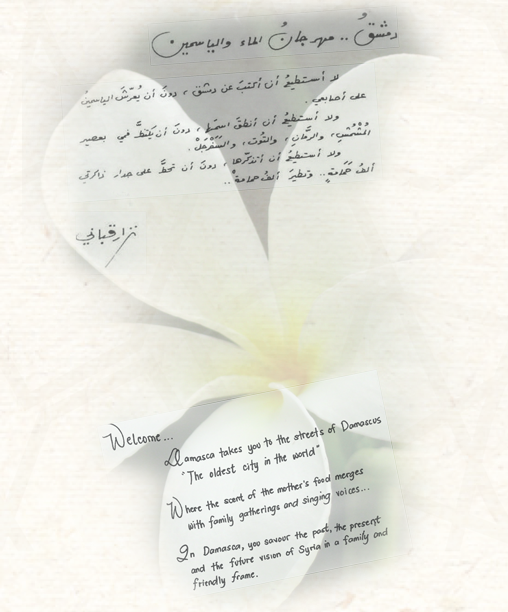 دمشقُ .. مهرجانُ الماء والياسمين
لا أستطيعُ أن أكتبَ عن دمشق ، دونَ أن يُعرّشَ الياسمينُ
على أصابعي .
ولا أستطيعُ أن أنطقَ اسمَها ، دونَ أن يكتظَّ فمي بعصير
المُشْمُشِ ، والرمَّانِ ، والتُوت ، والسَفَرْجَلْ .
ولا أستطيعُ أن أتذكّرها ، دونَ أن تحطَّ على جدار ذاكرتي
ألفُ حَمَامَةٍ .. وتطيرَ ألفُ حمامةْ ..
نزار قباني
Welcome...
Damasca takes you to the streets of Damascus
"The oldest city in the world"
Where the scent of the mother's food merges
with family gatherings and singing voices...
In Damasca, you savour the past, the present
and the future vision of Syria in a family and
friendly frame.